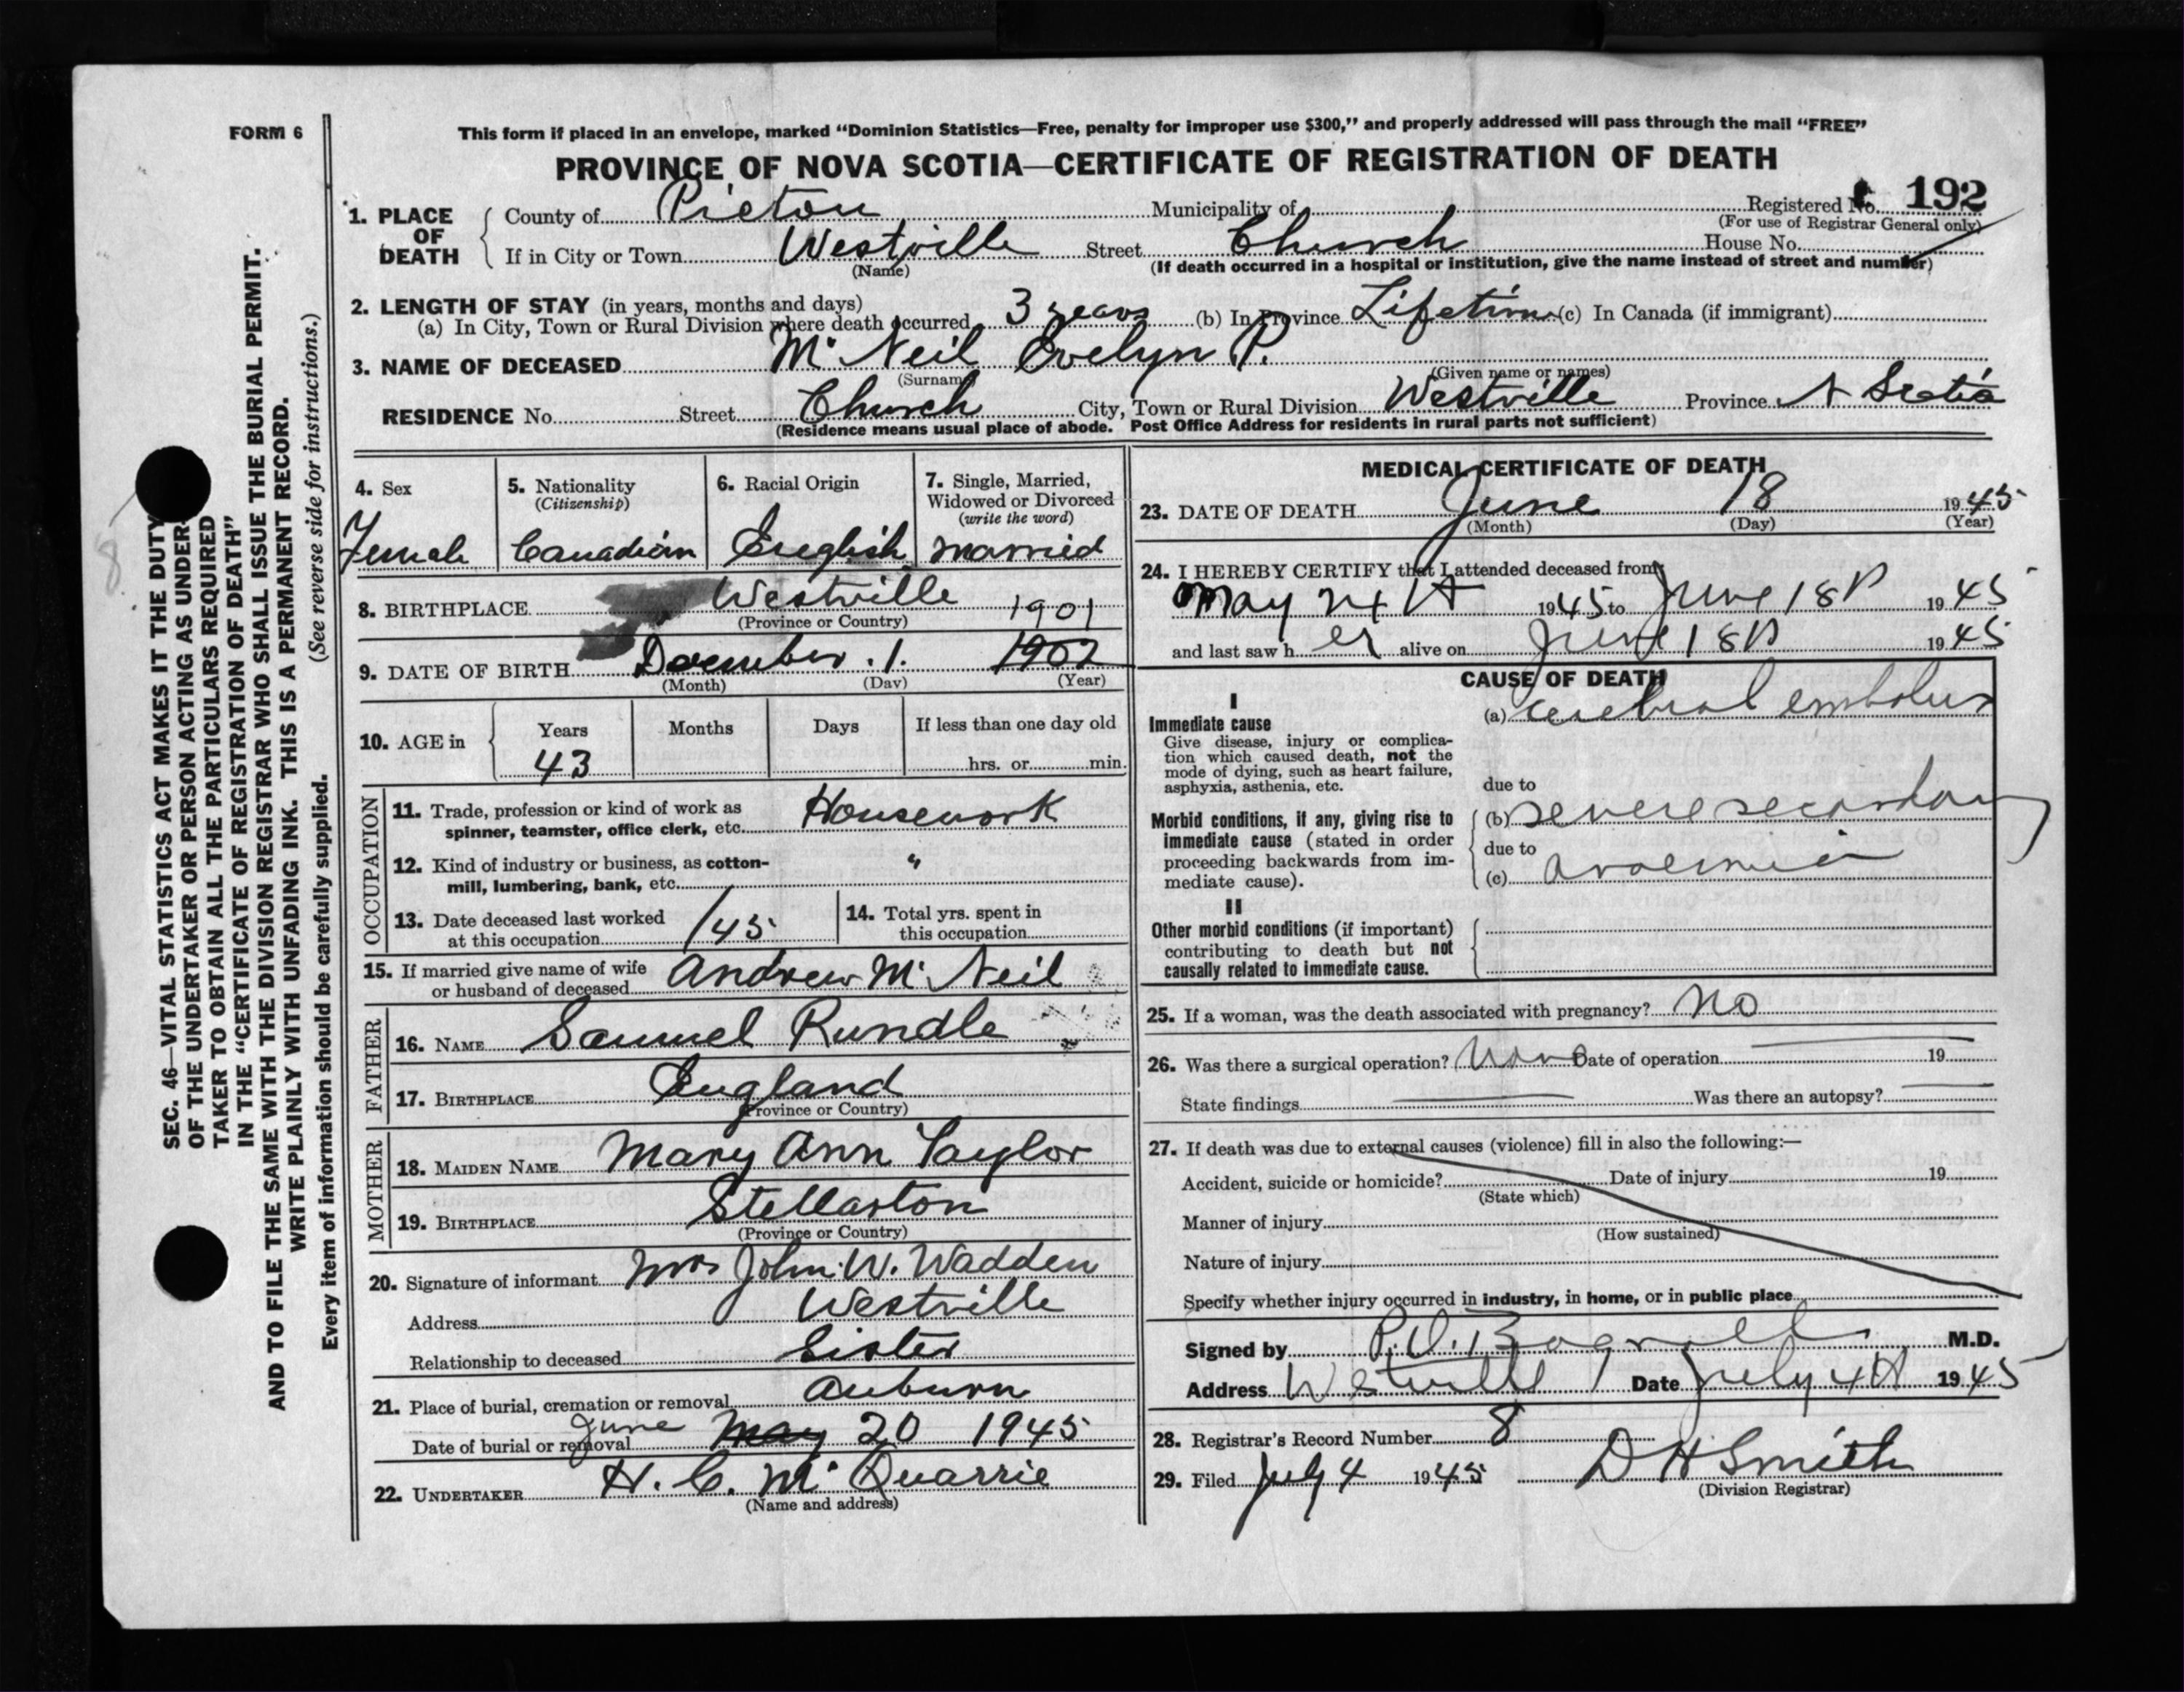 FORM 6
This form if placed in an envelope, marked “Dominion Statistics—Free, penalty for improper use $300,” and properly addressed will pass through the mail “FREE”
PROVINCE OF NOVA SCOTIA—CERTIFICATE OF REGISTRATION OF DEATH
1. PLACE OF DEATH County of Pictou Municipality of Registered No. 192
(For use of Registrar General only)
If in City or Town Westville Street Church House No.
(Name) (If death occurred in a hospital or institution, give the name instead of street and number)
2. LENGTH OF STAY (in years, months and days)
(a) In City, Town or Rural Division where death occurred 3 years (b) In Province Lifetime (c) In Canada (if immigrant)
3. NAME OF DECEASED McNeil Evelyn P.
(Surname) (Given name or names)
RESIDENCE No. Street Church City, Town or Rural Division Westville Province N Scotia
(Residence means usual place of abode. Post Office Address for residents in rural parts not sufficient)
4. Sex
Female
5. Nationality
(Citizenship)
Canadian
6. Racial Origin
English
7. Single, Married,
Widowed or Divorced
(write the word)
married
8. BIRTHPLACE Westville
(Province or Country) 1901
9. DATE OF BIRTH December 1. 1902
(Month) (Day) (Year)
10. AGE in Years Months Days If less than one day old
43 hrs. or min.
OCCUPATION
11. Trade, profession or kind of work as
spinner, teamster, office clerk, etc. Housework
12. Kind of industry or business, as cotton-
mill, lumbering, bank, etc. "
13. Date deceased last worked
at this occupation /45
14. Total yrs. spent in
this occupation
15. If married give name of wife
or husband of deceased Andrew McNeil
FATHER
16. NAME Samuel Rundle
17. BIRTHPLACE England
(Province or Country)
MOTHER
18. MAIDEN NAME Mary Ann Taylor
19. BIRTHPLACE Stellarton
(Province or Country)
20. Signature of informant Mrs John W. Wadden
Address Westville
Relationship to deceased Sister
21. Place of burial, cremation or removal Auburn
Date of burial or removal June May 20 1945
22. UNDERTAKER H. C. McQuarrie
(Name and address)
MEDICAL CERTIFICATE OF DEATH
23. DATE OF DEATH June 18 1945
(Month) (Day) (Year)
24. I HEREBY CERTIFY that I attended deceased from
May 24th 1945 to June 18th 1945
and last saw her alive on June 18th 1945
CAUSE OF DEATH
I
Immediate cause
Give disease, injury or complica-
tion which caused death, not the
mode of dying, such as heart failure,
asphyxia, asthenia, etc.
(a) cerebral embolus
due to
Morbid conditions, if any, giving rise to
immediate cause (stated in order
proceeding backwards from im-
mediate cause).
(b) severe secondary
due to
(c) anaemia
II
Other morbid conditions (if important)
contributing to death but not
causally related to immediate cause.
25. If a woman, was the death associated with pregnancy? no
26. Was there a surgical operation? none Date of operation 19
State findings Was there an autopsy?
27. If death was due to external causes (violence) fill in also the following:—
Accident, suicide or homicide? Date of injury 19
(State which)
Manner of injury
(How sustained)
Nature of injury
Specify whether injury occurred in industry, in home, or in public place
Signed by M.D.
Address Westville Date July 4th 1945
28. Registrar's Record Number 8
29. Filed July 4 1945 D H Smith
(Division Registrar)
SEC. 46—VITAL STATISTICS ACT MAKES IT THE DUTY
OF THE UNDERTAKER OR PERSON ACTING AS UNDER-
TAKER TO OBTAIN ALL THE PARTICULARS REQUIRED
IN THE “CERTIFICATE OF REGISTRATION OF DEATH”
AND TO FILE THE SAME WITH THE DIVISION REGISTRAR WHO SHALL ISSUE THE BURIAL PERMIT.
WRITE PLAINLY WITH UNFADING INK. THIS IS A PERMANENT RECORD.
Every item of information should be carefully supplied. (See reverse side for instructions.)
8